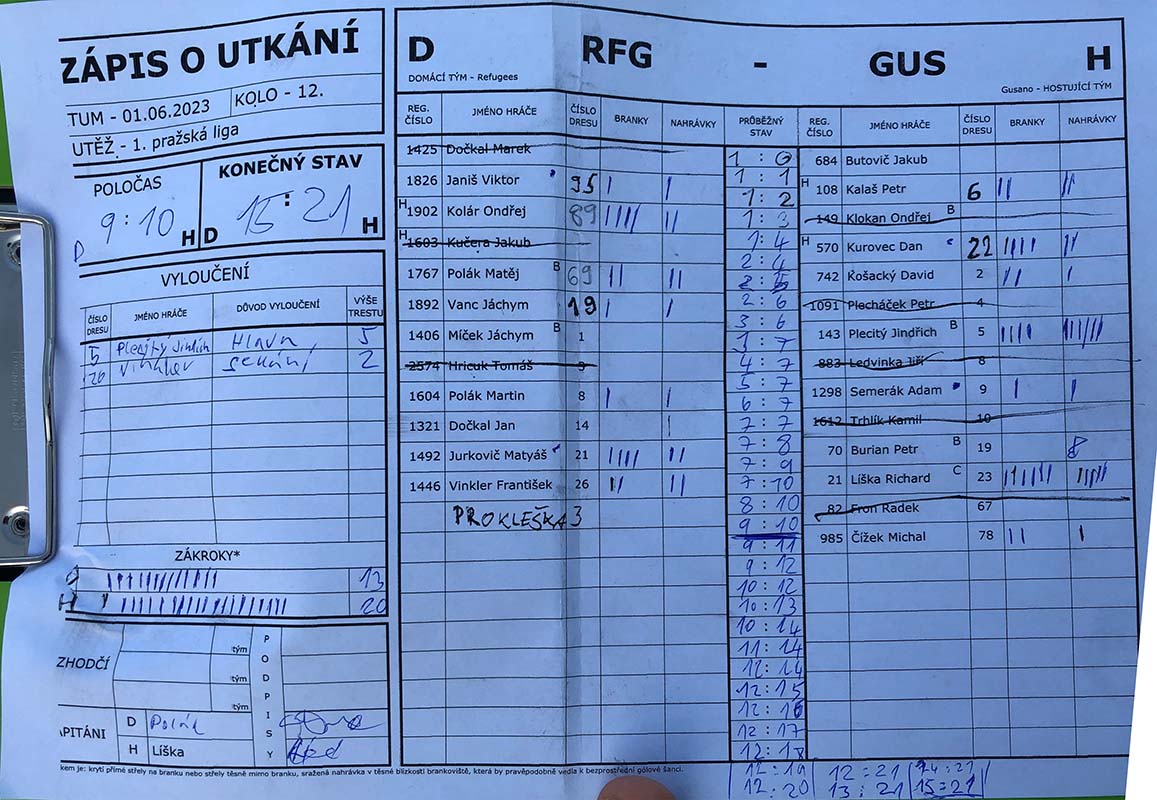 ZÁPIS O UTKÁNÍ
TUM - 01.06.2023 KOLO - 12.
UTĚŽ - 1. pražská liga
POLOČAS KONEČNÝ STAV
D 9:10 H D 15:21 H
VYLOUČENÍ
ČÍSLO DRESU JMÉNO HRÁČE DŮVOD VYLOUČENÍ VÝŠE TRESTU
5 Plecitý Jindřich Hlava 5
26 Vinkler sekání 2
ZÁKROKY*
13
H 20
ZHODČÍ tým
tým
tým
PODPISY
APITÁNI D Polák
H Líška
kem je: krytí přímé střely na branku nebo střely těsně mimo branku, sražená nahrávka v těsné blízkosti brankoviště, která by pravěpodobně vedla k bezprostřední gólové šanci.
D RFG - GUS H
DOMÁCÍ TÝM - Refugees Gusano - HOSTUJÍCÍ TÝM
REG. ČÍSLO JMÉNO HRÁČE ČÍSLO DRESU BRANKY NAHRÁVKY PRŮBĚŽNÝ STAV REG. ČÍSLO JMÉNO HRÁČE ČÍSLO DRESU BRANKY NAHRÁVKY
1425 Dočkal Marek 1:0 684 Butovič Jakub
1826 Janiš Viktor 95 | | 1:1
1:2 H 108 Kalaš Petr 6 || ||
H 1902 Kolár Ondřej 89 |||| || 1:3 149 Klokan Ondřej B
H 1603 Kučera Jakub 1:4 H 570 Kurovec Dan 22 |||| ||
1767 Polák Matěj B 69 || || 2:4 742 Košacký David 2 || |
2:5
1892 Vanc Jáchym 19 | | 2:6 1091 Plecháček Petr 4
1406 Míček Jáchym B 1 3:6 143 Plecitý Jindřich B 5 |||| ||||||
3:7
2574 Hricuk Tomáš 9 4:7 883 Ledvinka Jiří 8
1604 Polák Martin 8 | | 5:7 1298 Semerák Adam 9 | |
6:7
1321 Dočkal Jan 14 | 7:7 1612 Trhlík Kamil 10
1492 Jurkovič Matyáš 21 |||| || 7:8 70 Burian Petr B 19
7:9
1446 Vinkler František 26 || || 7:10 21 Líška Richard C 23
PROKLEŠKA 3 8:10 82 Fron Radek 67
9:10 985 Čížek Michal 78 || |
9:11
9:12
10:12
10:13
10:14
11:14
12:14
12:15
12:16
12:17
12:18
12:19 12:21 14:21
12:20 13:21 15:21